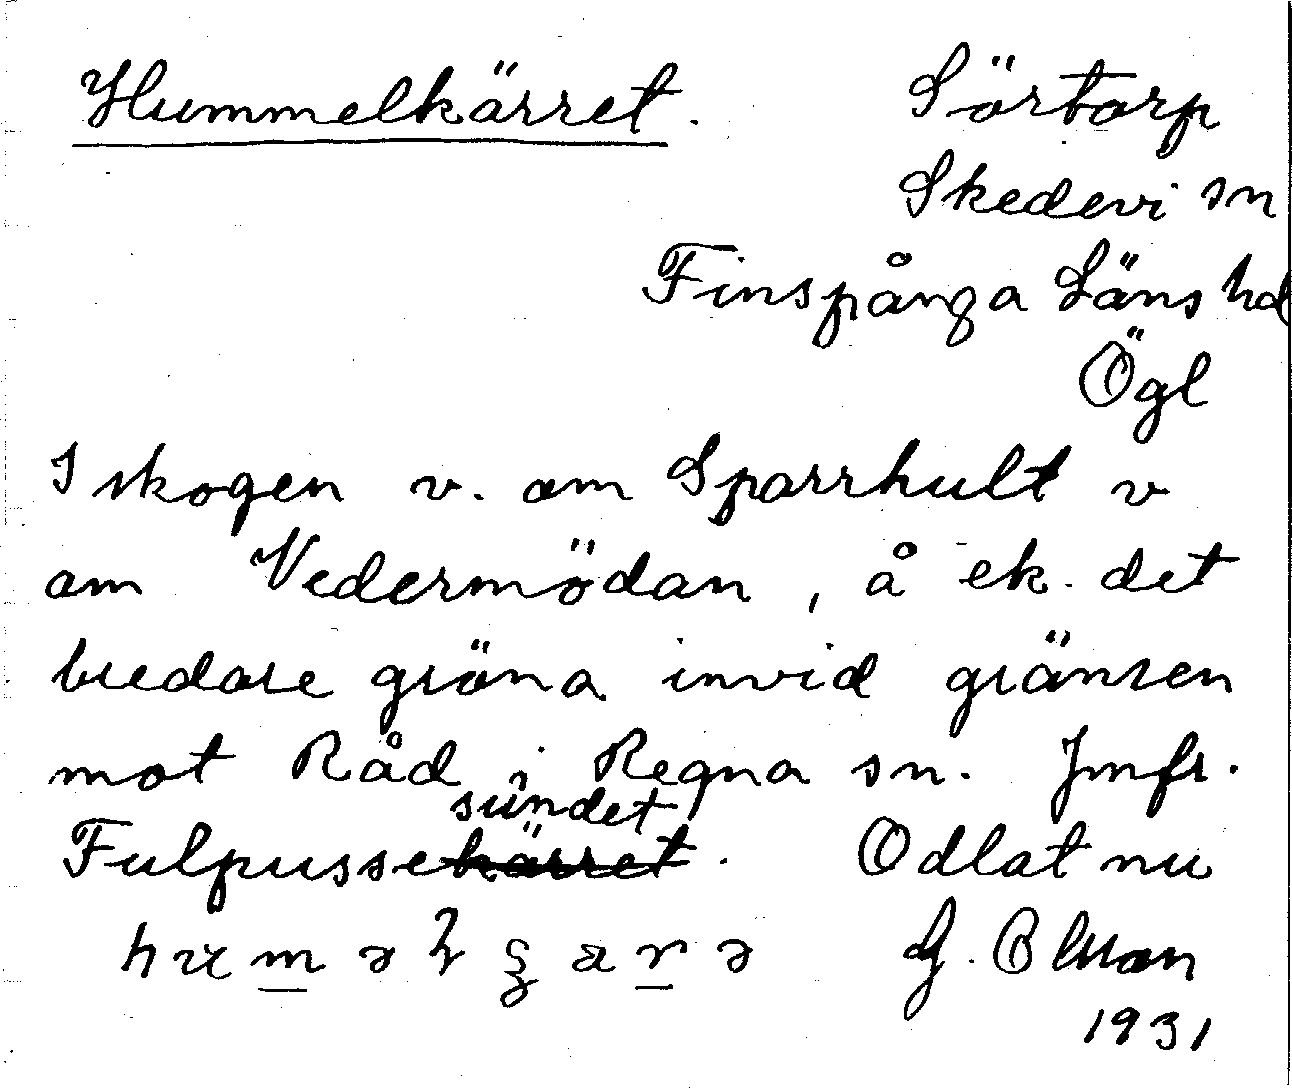 Hummelkärret.
Sörtorp
Skedevi sn
Finspånga Läns hd
Ögl
I skogen v. om Sparrhult v
om Vedermödan, å ek. det
bredare gröna invid gränsen
mot Råd i Regna sn. Jmfr.
sundet
Fulpussekärret. Odlat nu
G.
1931